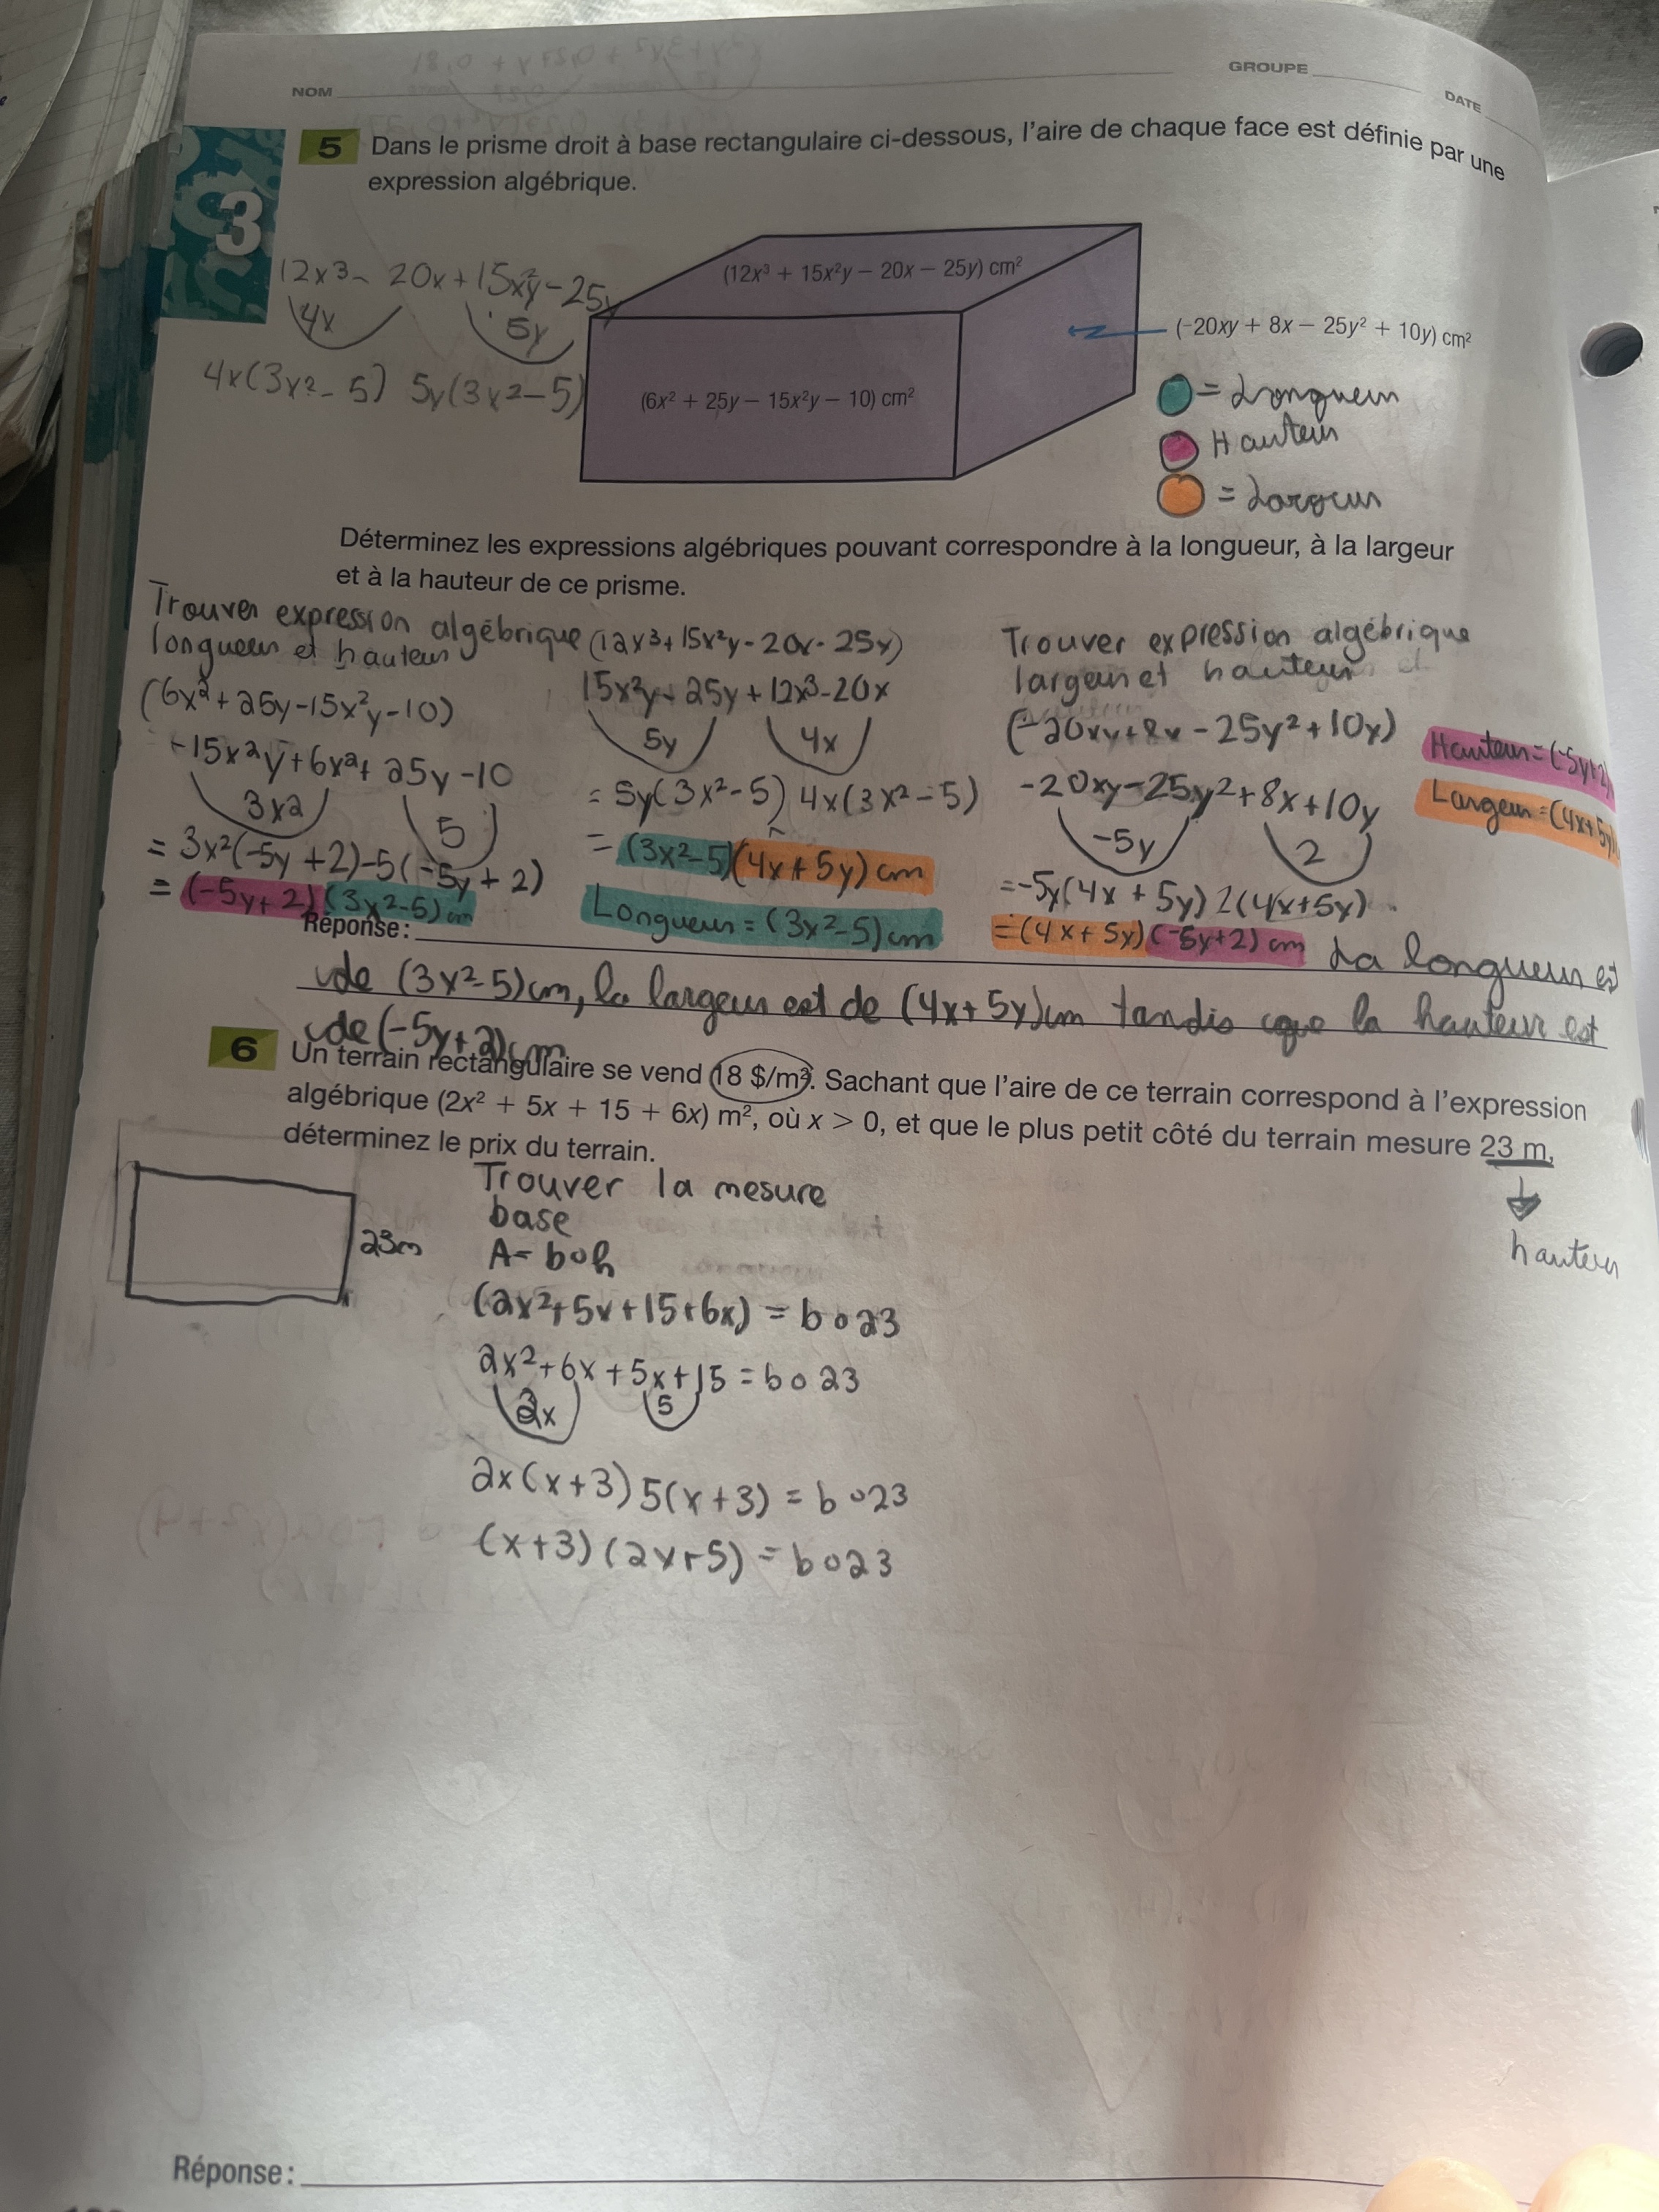 NOM
GROUPE
DATE
3
5 Dans le prisme droit à base rectangulaire ci-dessous, l'aire de chaque face est définie par une
expression algébrique.
12x³ - 20x + 15x²y - 25y
4x 5y
4x(3x² - 5) 5y(3x² - 5)
(12x³ + 15x²y – 20x – 25y) cm²
(–20xy + 8x – 25y² + 10y) cm²
(6x² + 25y – 15x²y – 10) cm²
= Longueur
Hauteur
= Largeur
Déterminez les expressions algébriques pouvant correspondre à la longueur, à la largeur
et à la hauteur de ce prisme.
Trouver expression algébrique
longueur et hauteur
(6x² + 25y - 15x²y - 10)
-15x²y + 6x² + 25y - 10
3x2 5
= 3x²(-5y + 2) - 5(-5y + 2)
= (-5y + 2)(3x² - 5) cm
(12x³ + 15x²y - 20x - 25y)
15x²y - 25y + 12x³ - 20x
5y 4x
= 5y(3x² - 5) 4x(3x² - 5)
= (3x² - 5)(4x + 5y) cm
Longueur = (3x² - 5) cm
Trouver expression algébrique
largeur et hauteur
(-20xy + 8x - 25y² + 10y)
-20xy - 25y² + 8x + 10y
-5y 2
= -5y(4x + 5y) 2(4x + 5y)
= (4x + 5y)(-5y + 2) cm
Hauteur = (-5y + 2)
Largeur = (4x + 5y)
Réponse : La longueur est
de (3x² - 5) cm, la largeur est de (4x + 5y) cm tandis que la hauteur est
de (-5y + 2) cm
6 Un terrain rectangulaire se vend 18 $/m². Sachant que l'aire de ce terrain correspond à l'expression
algébrique (2x² + 5x + 15 + 6x) m², où x > 0, et que le plus petit côté du terrain mesure 23 m,
déterminez le prix du terrain.
hauteur
23m
Trouver la mesure
base
A = b∘h
(2x² + 5x + 15 + 6x) = b∘23
2x² + 6x + 5x + 15 = b∘23
2x 5
2x(x + 3) 5(x + 3) = b∘23
(x + 3)(2x + 5) = b∘23
Réponse :